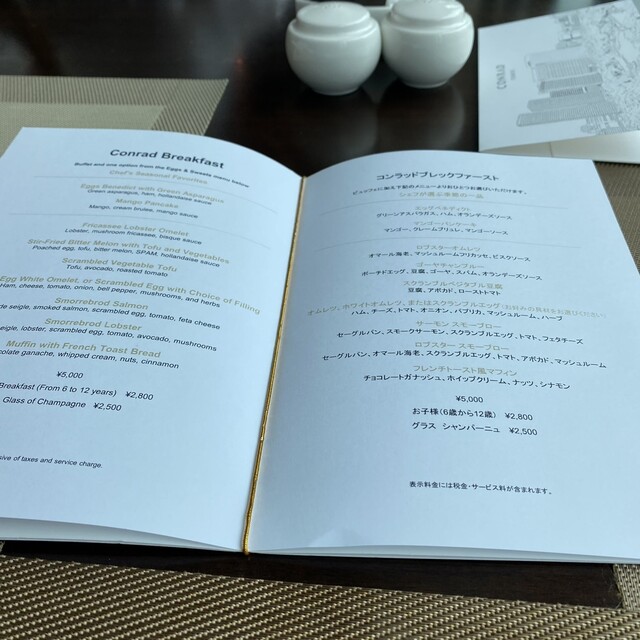 CONRAD
Conrad Breakfast
Buffet and one option from the Eggs & Sweets menu below
Chef's Seasonal Favorites
Eggs Benedict with Green Asparagus
Green asparagus, ham, hollandaise sauce
Mango Pancake
Mango, creme brulee, mango sauce
Fricassee Lobster Omelet
Lobster, mushroom fricassee, bisque sauce
Stir-Fried Bitter Melon with Tofu and Vegetables
Poached egg, tofu, bitter melon, SPAM, hollandaise sauce
Scrambled Vegetable Tofu
Tofu, avocado, roasted tomato
Egg White Omelet, or Scrambled Egg with Choice of Filling
Ham, cheese, tomato, onion, bell pepper, mushrooms, and herbs
Smorrebrod Salmon
de seigle, smoked salmon, scrambled egg, tomato, feta cheese
Smorrebrod Lobster
seigle, lobster, scrambled egg, tomato, avocado, mushrooms
Muffin with French Toast Bread
colate ganache, whipped cream, nuts, cinnamon
¥5,000
Breakfast (From 6 to 12 years) ¥2,800
Glass of Champagne ¥2,500
sive of taxes and service charge.
コンラッドブレックファースト
ビュッフェに加えて下記のメニューよりおひとつお選びいただけます。
シェフが選ぶ季節の一品
エッグベネディクト
グリーンアスパラガス、ハム、オランデーズソース
マンゴーパンケーキ
マンゴー、クレームブリュレ、マンゴーソース
ロブスターオムレツ
オマール海老、マッシュルームフリカッセ、ビスクソース
ゴーヤチャンプルー
ポーチドエッグ、豆腐、ゴーヤ、スパム、オランデーズソース
スクランブルベジタブル豆腐
豆腐、アボカド、ローストトマト
オムレツ、ホワイトオムレツ、またはスクランブルエッグ（お好みの具材をお選びください）
ハム、チーズ、トマト、オニオン、パプリカ、マッシュルーム、ハーブ
サーモン スモーブロー
セーグルパン、スモークサーモン、スクランブルエッグ、トマト、フェタチーズ
ロブスター スモーブロー
セーグルパン、オマール海老、スクランブルエッグ、トマト、アボカド、マッシュルーム
フレンチトースト風マフィン
チョコレートガナッシュ、ホイップクリーム、ナッツ、シナモン
¥5,000
お子様（6歳から12歳） ¥2,800
グラス シャンパーニュ ¥2,500
表示料金には税金・サービス料が含まれます。